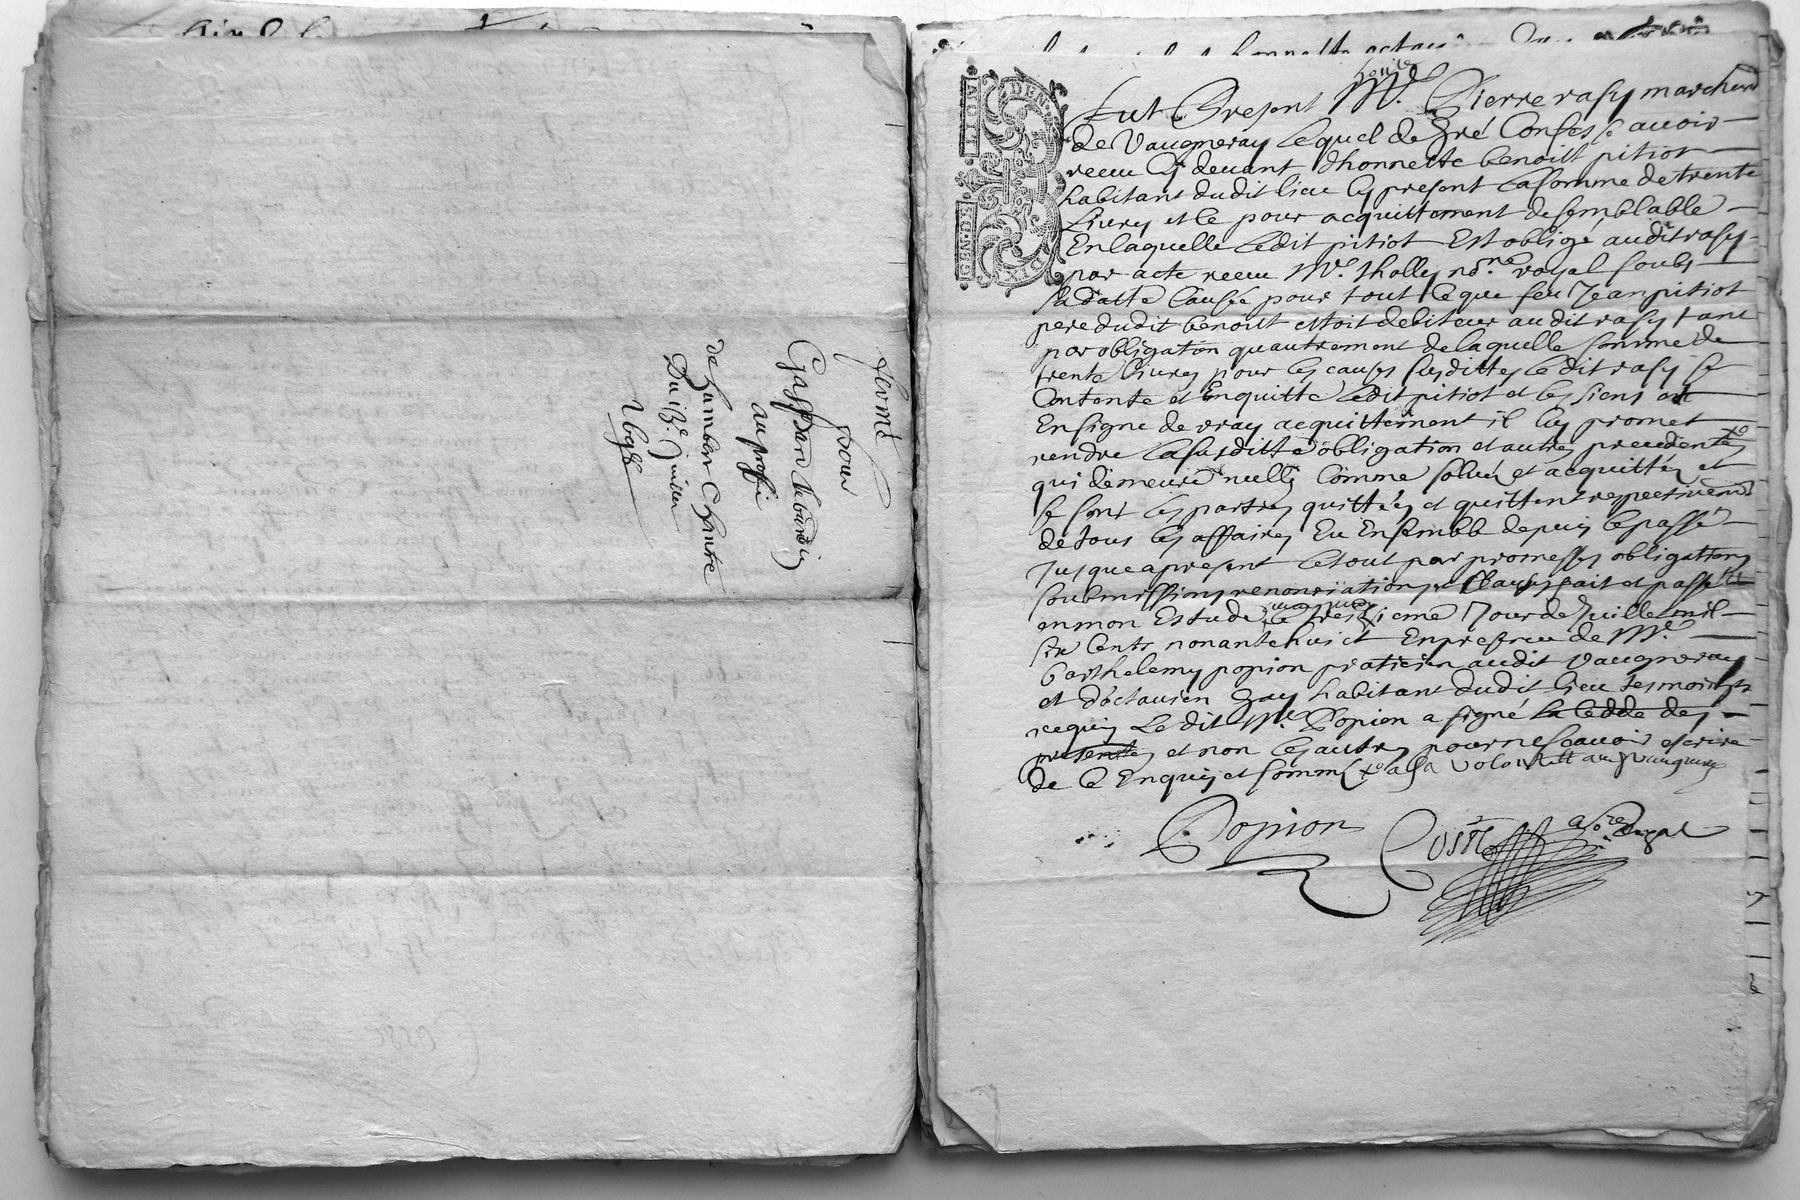 ferme
pour
Gaspard
au profit
de humber Chantre
Du 13e Juillet
1698
GEN DE
honn
fut Present Mr. Pierre rasy marchand
de Vaugneray lequel de gré Confesse avoir
receu Cy devant dhonneste benoist pitiot
habitant dudit lieu Cy present la somme de trente
Livres et ce pour acquittement de semblable
En laquelle ledit pitiot Est obligé audit rasy
par acte receu Me. tholly nore royal soubs
sa datte Causée pour tout Ce que feu Jean pitiot
pere dudit benoist estoit debiteur audit rasy tant
par obligaton quautrement de laquelle somme de
trente livres pour les causes susdittes ledit rasy se
Contente et Enquitte ledit pitiot et les siens et
En signe de vray acquittement il luy promet
rendre la susditte obligation et autres precedentes
qui demeure nulle Comme solvée et acquittée et
se sont les parties quittées et quittent respectivemt
de tous les affaires Eu Ensemble depuis le passé
Jusque apresent le tout par promesses obligations
soubmissions renonciations et clauses fait et passé
en mon Estude le treizieme Jour de Juillet mil
six Cents nonante huict En presence de Me
barthelemy popion praticien audit Vaugneray
et doctavien gay habitant dudit lieu tesmoins
requis Ledit Me. Popion a signé la Cedde des
presentes et non les autres pour ne scavoir escrire
de Ce Enquis et sommé
Popion
Coste
nore Royal